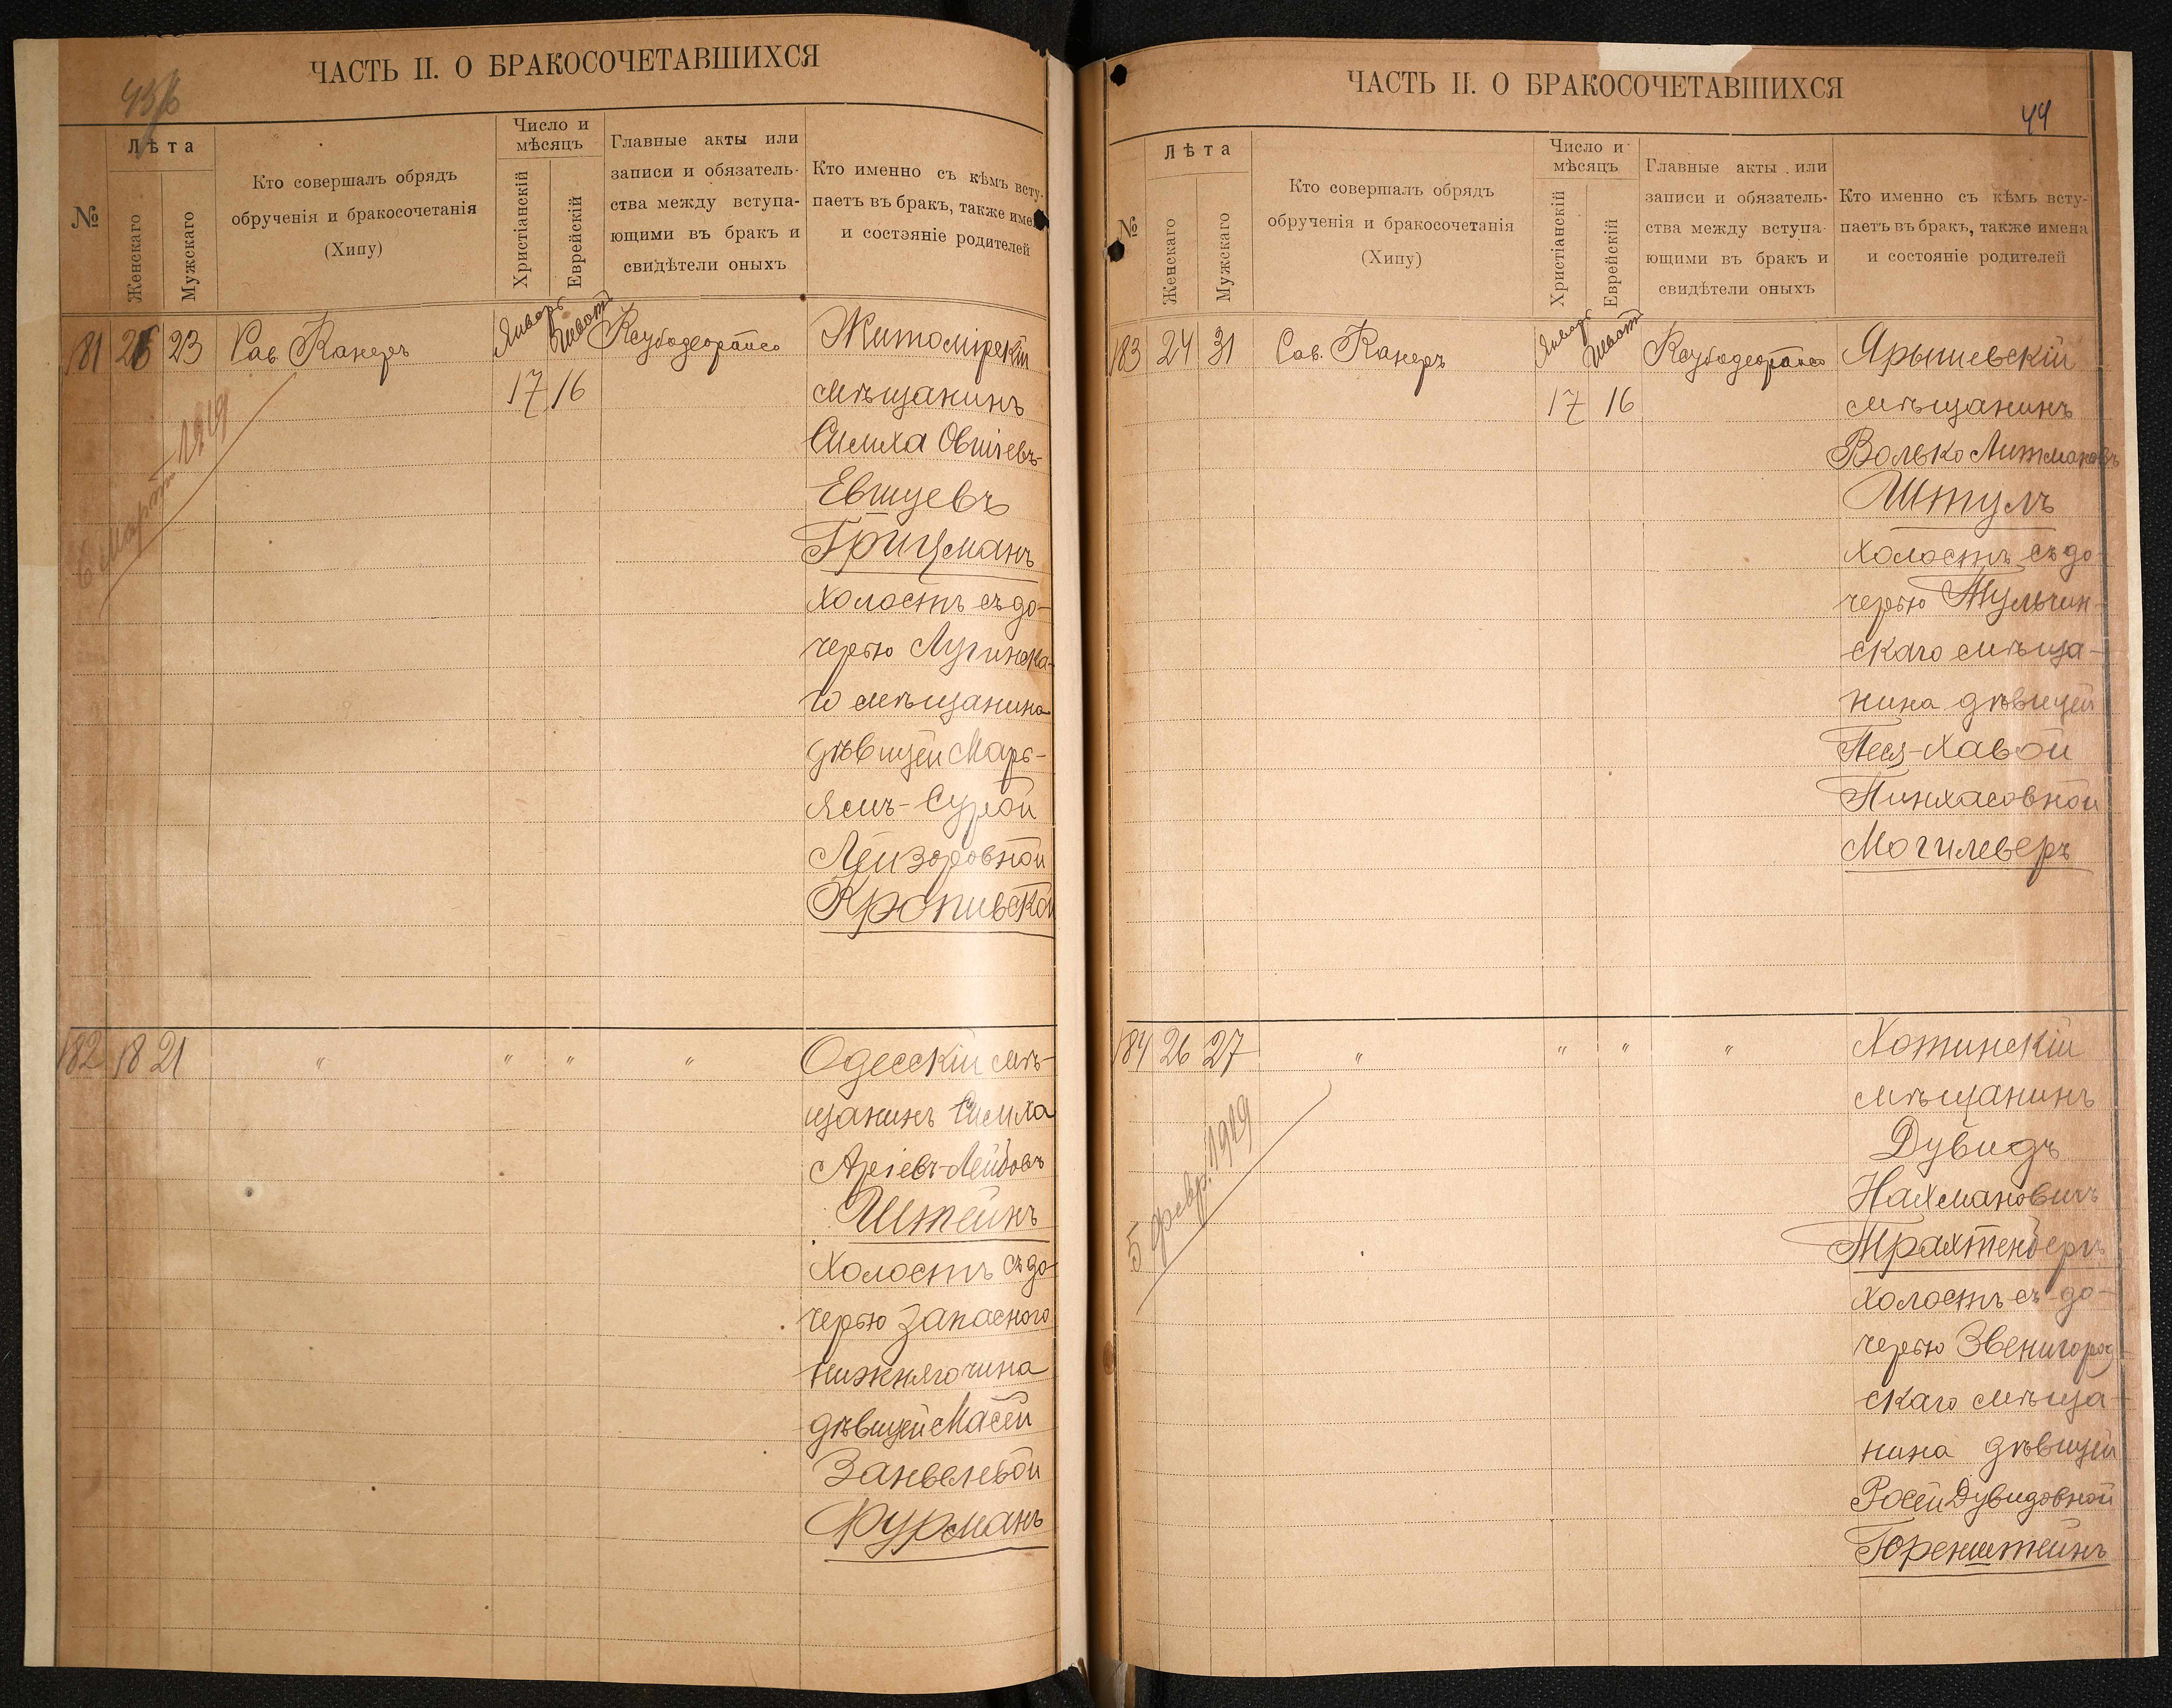 ЧАСТЬ II. О БРАКОСОЧЕТАВШИХСЯ
№
Лѣта
Женскаго
Мужскаго
Кто совершалъ обрядъ
обрученія и бракосочетанія
(Хипу)
Число и
мѣсяцъ
Христіанскій
Еврейскій
Главные акты или
записи и обязатель-
ства между вступа-
ющими въ бракъ и
свидѣтели оныхъ
Кто именно съ кѣмъ всту-
паетъ въ бракъ, также име
и состояніе родителей
181 23 Рав. Канеръ Январь Шватъ
17 16
Житомірскій
мѣщанинъ
Симха Овшіевъ-
Евшуевъ
Грицманъ
холостъ съ до-
черью Лугинска-
го мѣщанина
дѣвицей Марь-
ямъ-Сурой
Лейзоровной
Кропивской
6 Марта 1919
182 18 21 " " " "
Одесскій мѣ-
щанинъ Симха
Аріевъ-Лейбовъ
Штейнъ
холостъ съ до-
черью запасного
нижняго чина
дѣвицей Масей
Занвелевой
Фурманъ
ЧАСТЬ II. О БРАКОСОЧЕТАВШИХСЯ
44
№
Лѣта
Женскаго
Мужскаго
Кто совершалъ обрядъ
обрученія и бракосочетанія
(Хипу)
Число и
мѣсяцъ
Христіанскій
Еврейскій
Главные акты или
записи и обязатель-
ства между вступа-
ющими въ бракъ и
свидѣтели оныхъ
Кто именно съ кѣмъ всту-
паетъ въ бракъ, также имена
и состояніе родителей
183 24 31 Рав. Канеръ Январь Шватъ
17 16
Ярышевскій
мѣщанинъ
Волько Литмановъ
Штуль
холостъ съ до-
черью Тульчин-
скаго мѣща-
нина дѣвицей
Песя-Хавой
Пинхасовной
Могилеверъ
184 26 27 " " " "
Хотинскій
мѣщанинъ
Дувидъ
Нахмановичъ
Трахтенбергъ
холостъ съ до-
черью Звенигород-
скаго мѣща-
нина дѣвицей
Росей Дувидовной
Горенштейнъ
5 февр. 1919